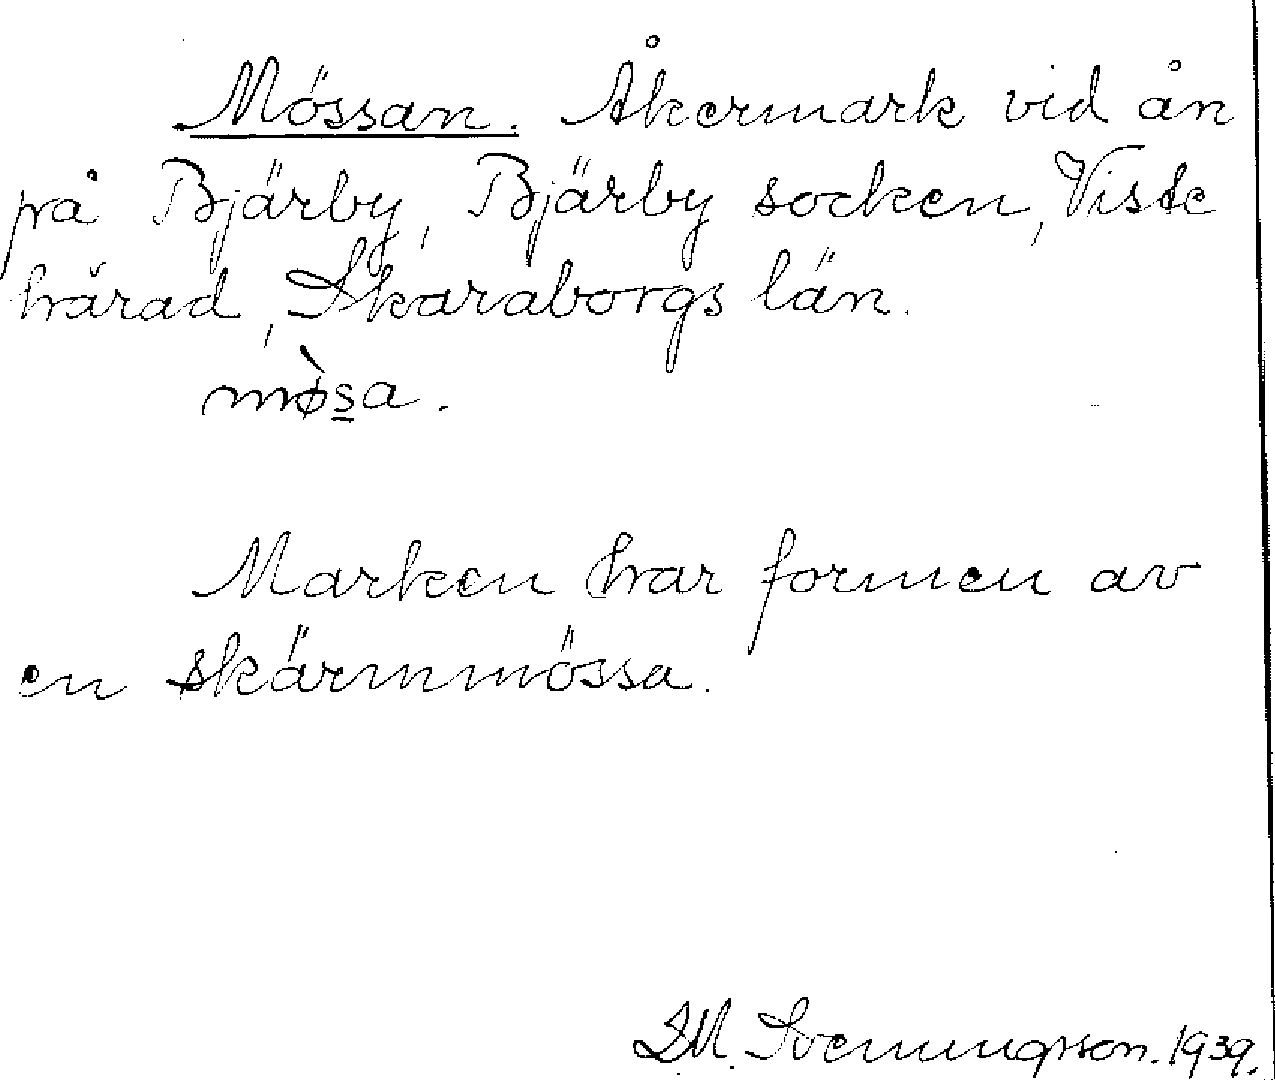 Mössan. Åkermark vid ån
på Bjärby, Bjärby socken, Viste
härad, Skaraborgs län.
mø̀s̲a.
Marken har formen av
en skärmmössa.
D.M. Svenungsson. 1939.